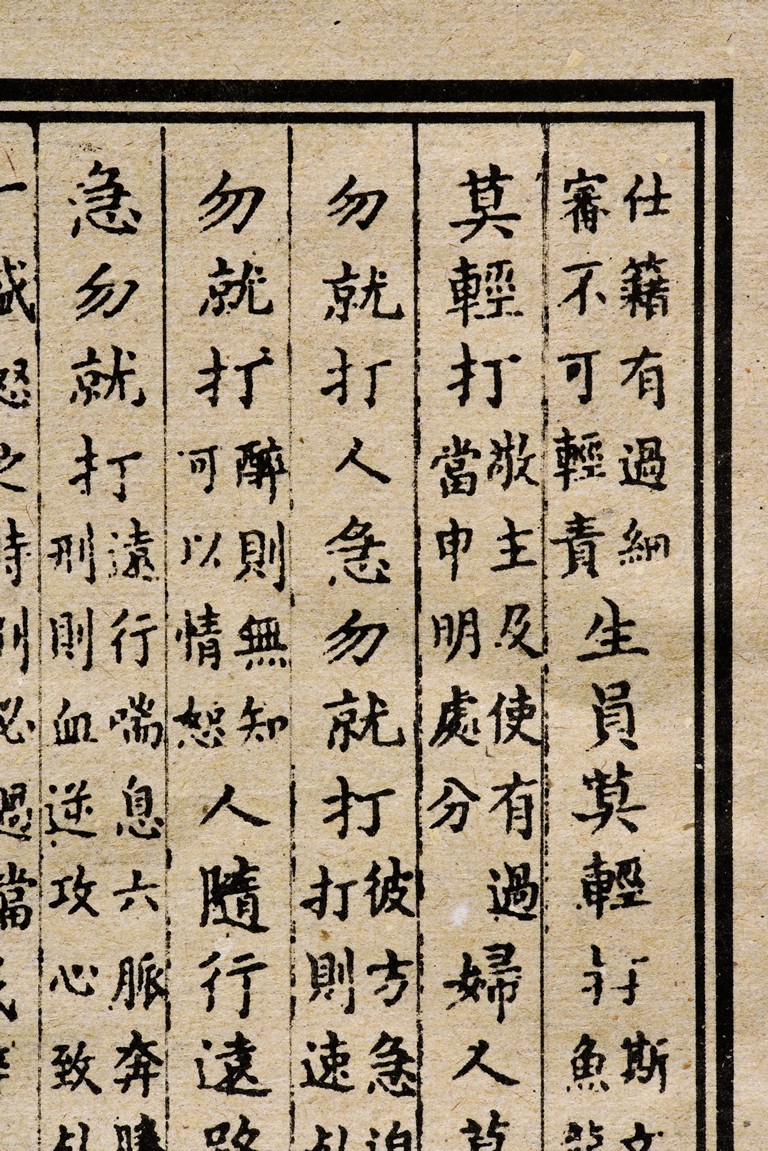 仕籍有過細審不可輕責生員莫輕打斯文魚
莫輕打敬主及使有過當申明處分婦人莫
勿就打人急勿就打彼方急迫打則速
勿就打醉則無知可以情恕人隨行遠路
急勿就打遠行喘息六脈奔騰刑則血逆攻心致
一盛怒之時刑必過當